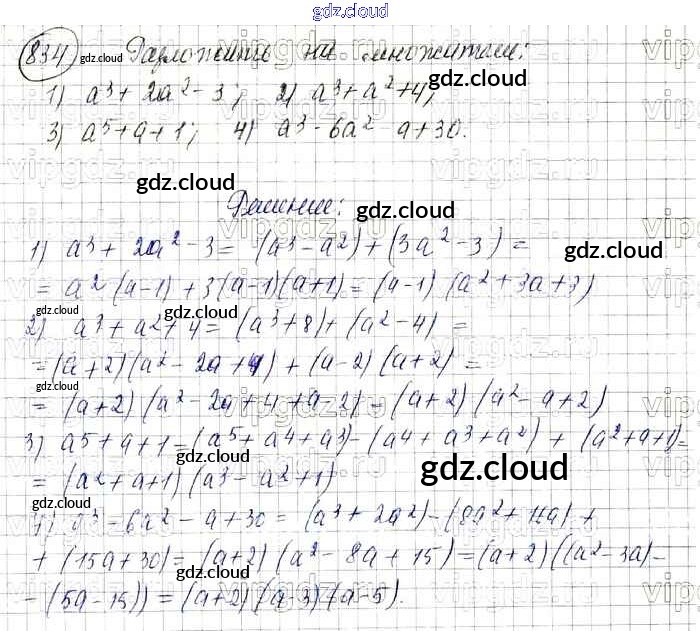 gdz.cloud
834 gdz.cloud Разложить на множители:
gdz.cloud
1) a³ + 2a² - 3; 2) a³ + a² + 4;
3) a⁵ + a + 1; 4) a³ - 6a² - a + 30.
gdz.cloud
Решение:
gdz.cloud
1) a³ + 2a² - 3 = (a³ - a²) + (3a² - 3) =
gdz.cloud
= a²(a-1) + 3(a-1)(a+1) = (a-1)(a² + 3a + 3)
gdz.cloud
gdz.cloud
2) a³ + a² + 4 = (a³ + 8) + (a² - 4) =
= (a+2)(a² - 2a + 4) + (a-2)(a+2) =
gdz.cloud
= (a+2)(a² - 2a + 4 + a - 2) = (a+2)(a² - a + 2)
3) a⁵ + a + 1 = (a⁵ + a⁴ + a³) - (a⁴ + a³ + a²) + (a² + a + 1) =
gdz.cloud
gdz.cloud
= (a² + a + 1)(a³ - a² + 1)
gdz.cloud
4) a³ - 6a² - a + 30 = (a³ + 2a²) - (8a² + 16a) +
+ (15a + 30) = (a+2)(a² - 8a + 15) = (a+2)((a² - 3a) -
gdz.cloud
- (5a - 15)) = (a+2)(a-3)(a-5).
gdz.cloud
vipgdz.ru